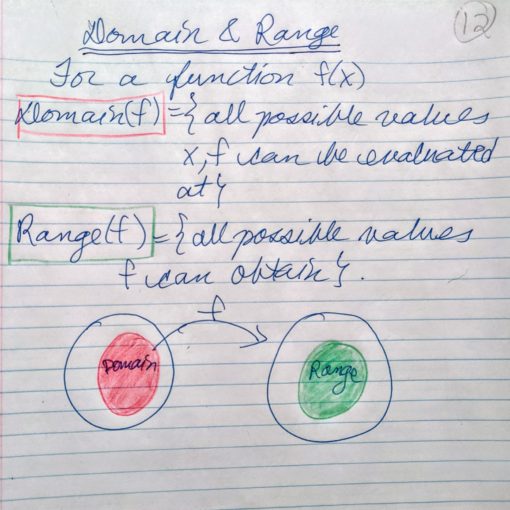 12
Domain & Range
For a function f(x)
Domain(f) = { all possible values
x, f can be evaluated
at }
Range(f) = { all possible values
f can obtain }.
f
Domain
Range